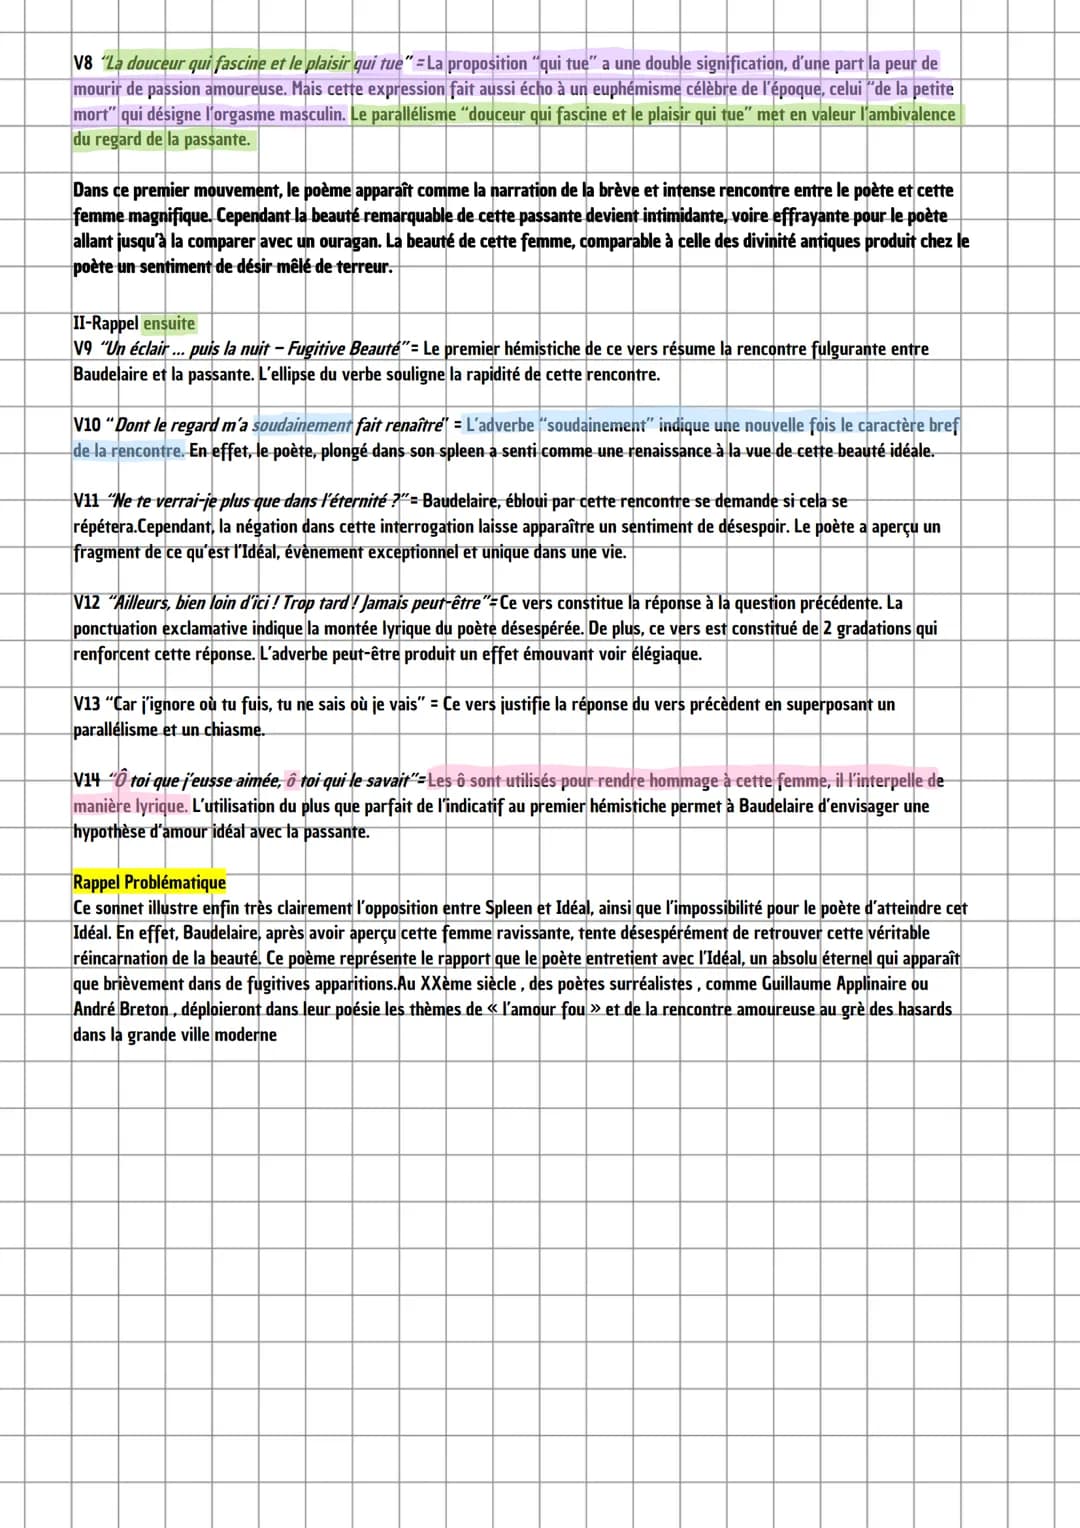 V8 “La douceur qui fascine et le plaisir qui tue” = La proposition “qui tue” a une double signification, d’une part la peur de
mourir de passion amoureuse. Mais cette expression fait aussi écho à un euphémisme célèbre de l’époque, celui “de la petite
mort” qui désigne l’orgasme masculin. Le parallélisme “douceur qui fascine et le plaisir qui tue” met en valeur l’ambivalence
du regard de la passante.
Dans ce premier mouvement, le poème apparaît comme la narration de la brève et intense rencontre entre le poète et cette
femme magnifique. Cependant la beauté remarquable de cette passante devient intimidante, voire effrayante pour le poète
allant jusqu’à la comparer avec un ouragan. La beauté de cette femme, comparable à celle des divinité antiques produit chez le
poète un sentiment de désir mêlé de terreur.
II-Rappel ensuite
V9 “Un éclair ... puis la nuit – Fugitive Beauté”= Le premier hémistiche de ce vers résume la rencontre fulgurante entre
Baudelaire et la passante. L’ellipse du verbe souligne la rapidité de cette rencontre.
V10 “Dont le regard m’a soudainement fait renaître” = L’adverbe “soudainement” indique une nouvelle fois le caractère bref
de la rencontre. En effet, le poète, plongé dans son spleen a senti comme une renaissance à la vue de cette beauté idéale.
V11 “Ne te verrai-je plus que dans l’éternité ?”= Baudelaire, ébloui par cette rencontre se demande si cela se
répétera.Cependant, la négation dans cette interrogation laisse apparaître un sentiment de désespoir. Le poète a aperçu un
fragment de ce qu’est l’Idéal, évènement exceptionnel et unique dans une vie.
V12 “Ailleurs, bien loin d’ici ! Trop tard ! Jamais peut-être”= Ce vers constitue la réponse à la question précédente. La
ponctuation exclamative indique la montée lyrique du poète désespérée. De plus, ce vers est constitué de 2 gradations qui
renforcent cette réponse. L’adverbe peut-être produit un effet émouvant voir élégiaque.
V13 “Car j’ignore où tu fuis, tu ne sais où je vais” = Ce vers justifie la réponse du vers précèdent en superposant un
parallélisme et un chiasme.
V14 “Ô toi que j’eusse aimée, ô toi qui le savait”= Les ô sont utilisés pour rendre hommage à cette femme, il l’interpelle de
manière lyrique. L’utilisation du plus que parfait de l’indicatif au premier hémistiche permet à Baudelaire d’envisager une
hypothèse d’amour idéal avec la passante.
Rappel Problématique
Ce sonnet illustre enfin très clairement l’opposition entre Spleen et Idéal, ainsi que l’impossibilité pour le poète d’atteindre cet
Idéal. En effet, Baudelaire, après avoir aperçu cette femme ravissante, tente désespérément de retrouver cette véritable
réincarnation de la beauté. Ce poème représente le rapport que le poète entretient avec l’Idéal, un absolu éternel qui apparaît
que brièvement dans de fugitives apparitions.Au XXème siècle , des poètes surréalistes , comme Guillaume Applinaire ou
André Breton , déploieront dans leur poésie les thèmes de « l’amour fou » et de la rencontre amoureuse au grè des hasards
dans la grande ville moderne